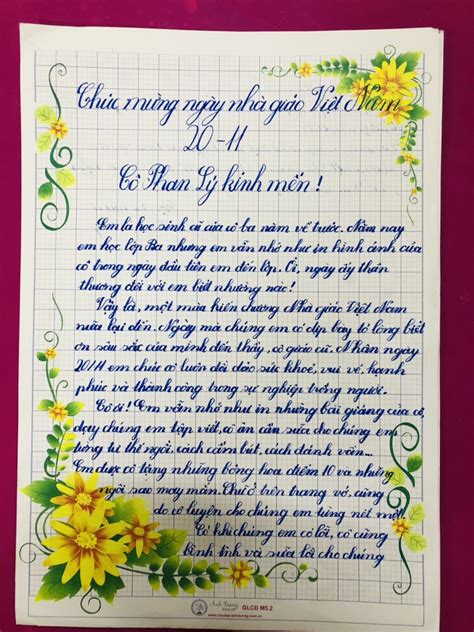 Chúc mừng ngày nhà giáo Việt Nam
20-11
Cô Phan Lý kính mến!
Em là học sinh cũ của cô ba năm về trước. Năm nay
em học lớp Ba nhưng em vẫn nhớ như in hình ảnh của
cô trong ngày đầu tiên em đến lớp. Ôi, ngày ấy thân
thương đối với em biết nhường nào!
Vậy là, một mùa hiến chương Nhà giáo Việt Nam
nữa lại đến. Ngày mà chúng em có dịp bày tỏ lòng biết
ơn sâu sắc của mình đến thầy, cô giáo cũ. Nhân ngày
20/11 em chúc cô luôn dồi dào sức khoẻ, vui vẻ, hạnh
phúc và thành công trong sự nghiệp trồng người.
Cô ơi! Em vẫn nhớ như in những bài giảng của cô,
dạy chúng em tập viết, cô ân cần sửa cho chúng em
từng tư thế ngồi, cách cầm bút, cách đánh vần...
Em được cô tặng những bông hoa điểm 10 và những
ngôi sao may mắn. Chữ ở trên trang vở, cũng
do cô luyện cho chúng em từng nét một.
Có khi chúng em có lỗi, cô cũng
bình tĩnh và sửa lỗi cho chúng
GLCD M5.2